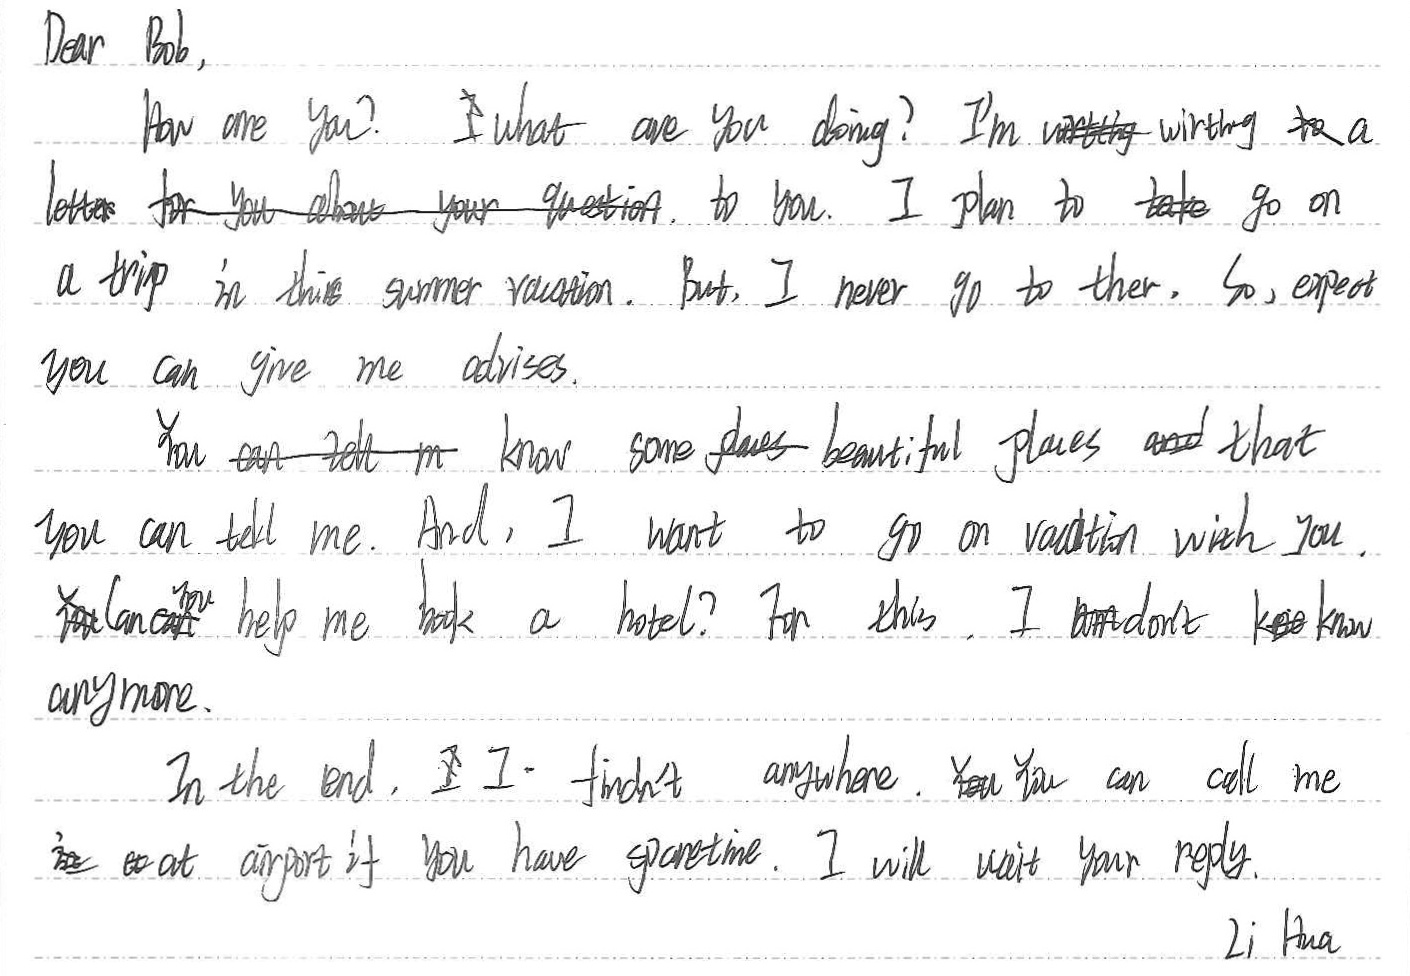 Dear Bob,
How are you? What are you doing? I'm wirthg a
letter to you. I plan to go on
a trip in this summer vacation. But, I never go to ther. So, expect
you can give me advises.
You know some beautiful places that
you can tell me. And, I want to go on vacation with you.
Can you help me book a hotel? For this, I don't know
anymore.
In the end, I findn't anywhere. You can call me
at airport if you have sparetime. I will wait your reply.
Li Hua